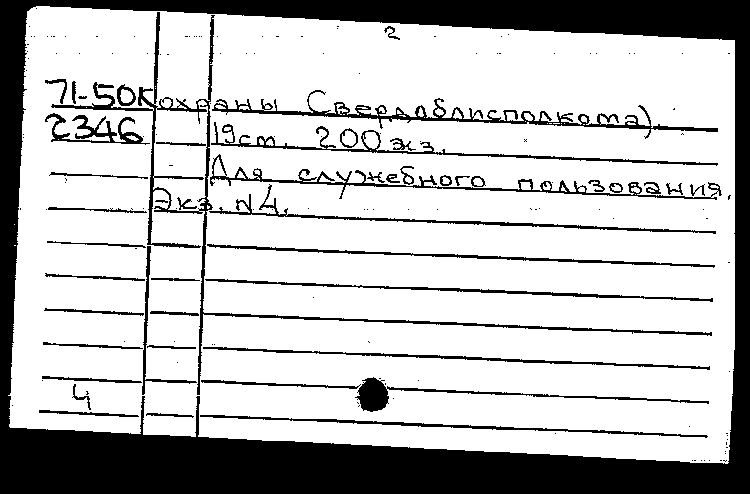 2
71-50К охраны Свердоблисполкома).
2346 19 ст. 200 экз.
Для служебного пользования.
Экз. N4.
4